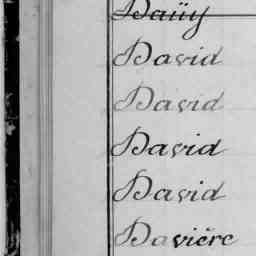 Daüy
David
David
David
David
Davière